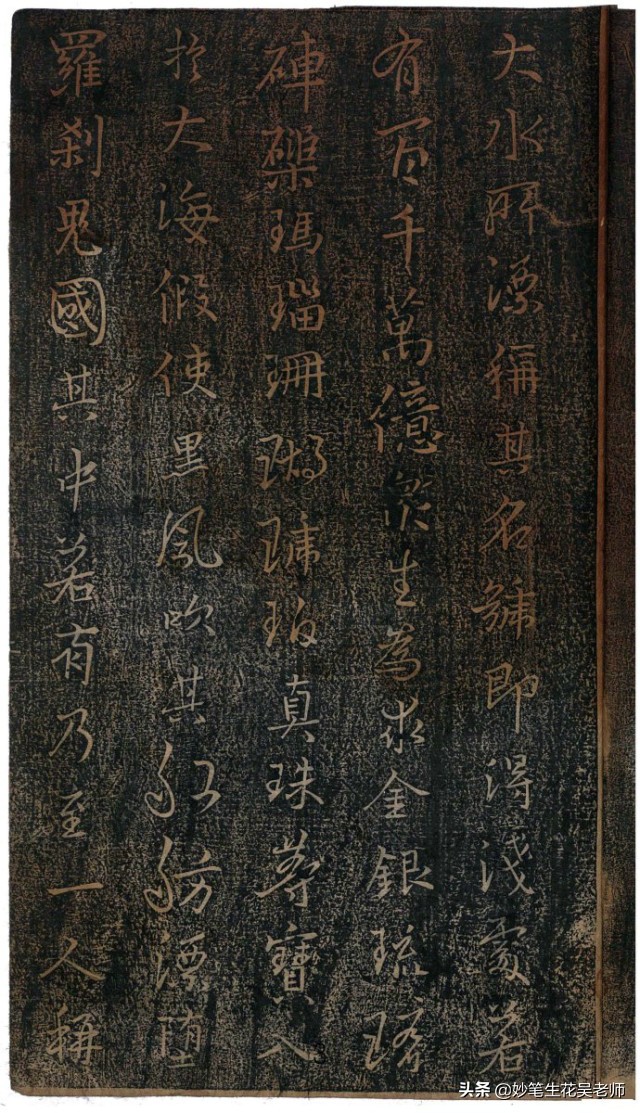 大水所漂稱其名號即得淺處若
有百千萬億衆生為求金銀琉璃
硨磲瑪瑙珊瑚琥珀真珠等寶入
於大海假使黑風吹其船舫漂墮
羅刹鬼國其中若有乃至一人稱
头条 @妙笔生花吴老师